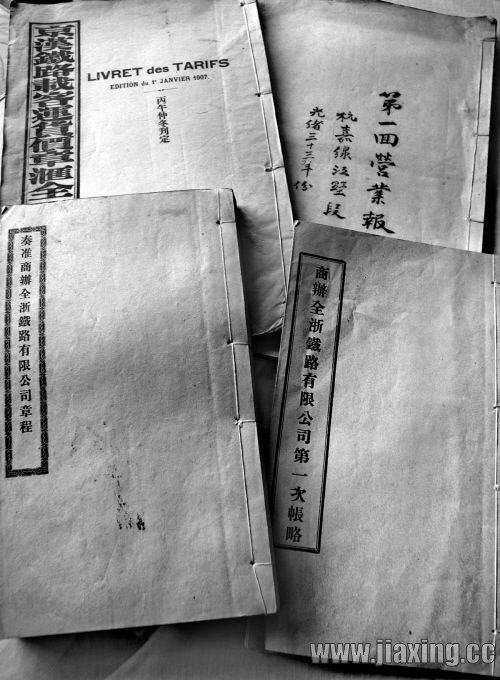 京漢鐵路載客運貨價章滙全
LIVRET des TARIFS
EDITION du 1ᵉ JANVIER 1907.
丙午仲冬刋定
第一回營業報
杭嘉線江墅段
光緒三十三年份
奏准商辦全浙鐵路有限公司章程
商辦全浙鐵路有限公司第一次帳略
www.jiaxing.cc